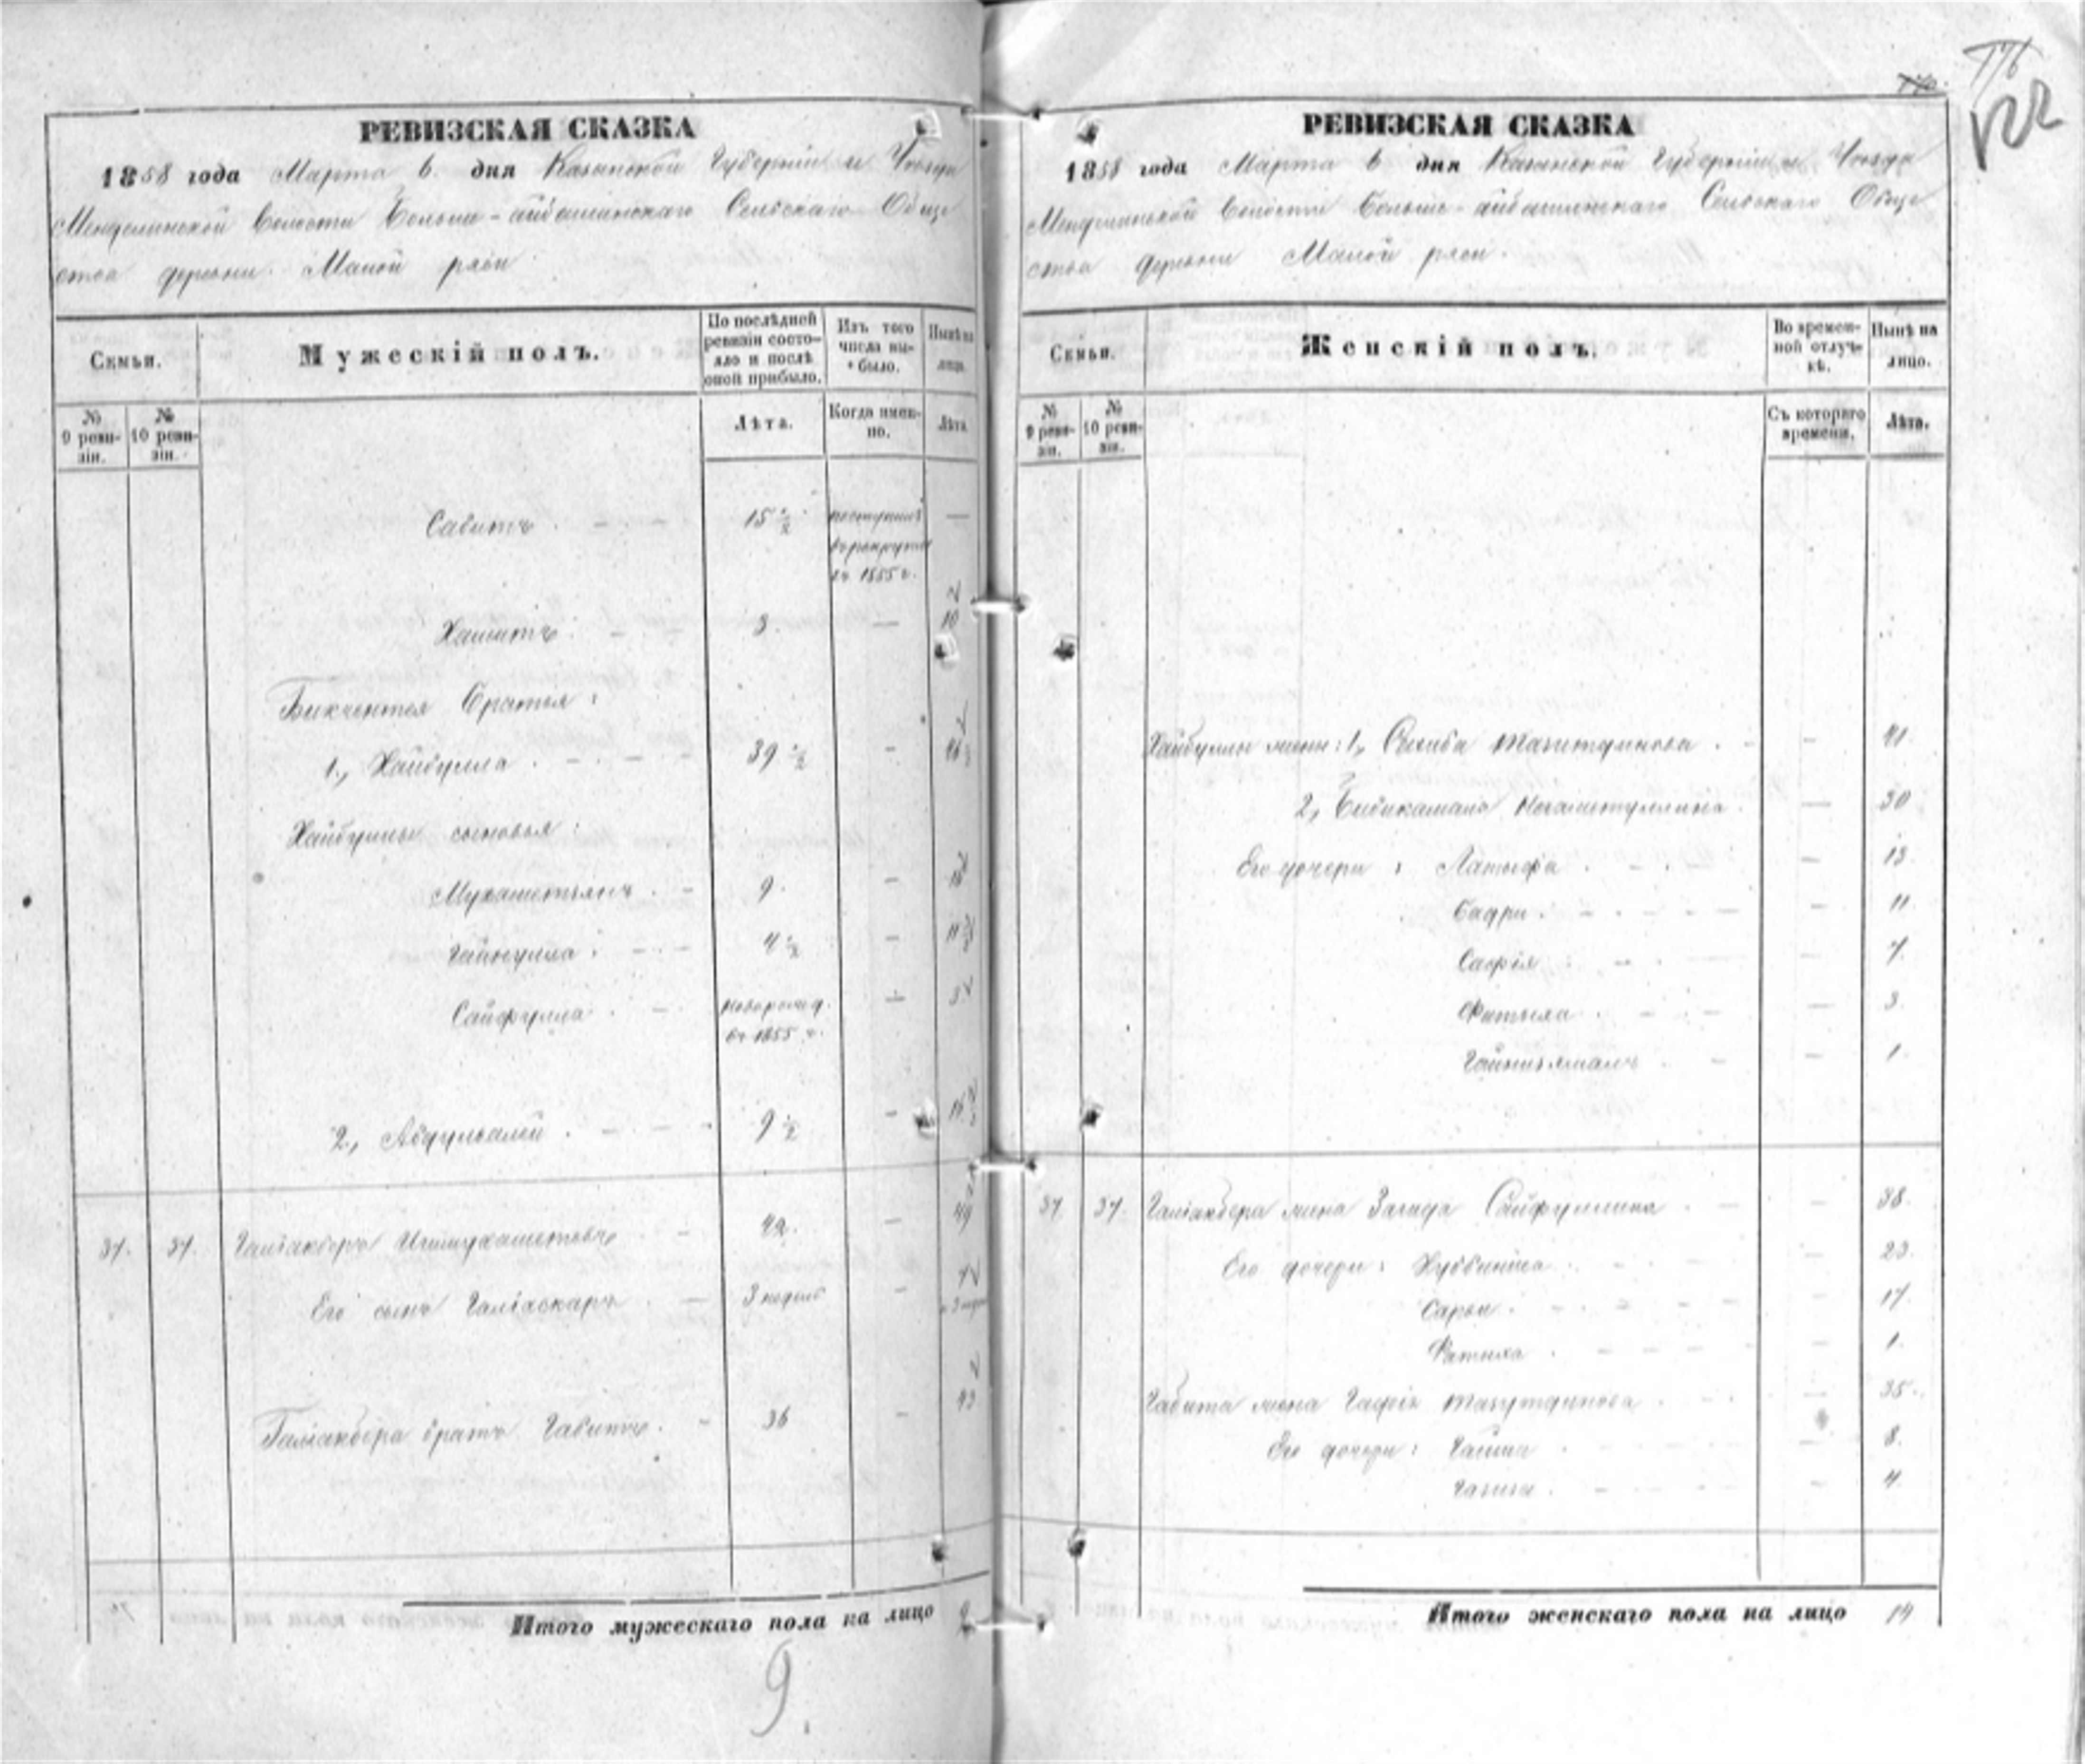 РЕВИЗСКАЯ СКАЗКА
1858 года Марта 6 дня Казанской Губернии и Уезда
Менделинской Волости Больше-айбашинскаго Сельскаго Обще
ства деревни Малой ряси
Семьи.
Мужескій полъ.
По послѣдней ревизіи состояло и послѣ оной прибыло.
Изъ того числа выбыло.
Нынѣ на лицо.
№ 9 ревизіи.
№ 10 ревизіи.
Лѣта.
Когда именно.
Лѣта
Сабитъ 15 ½ поступилъ —
въ рекруты
въ 1855 г.
Хашитъ 3. — 10
Бикчентея братья:
1., Хайбулла 39 ½ - 46
Хайбуллы сыновья:
Мухаметьянъ 9. —
Гайнулла 4 ½ — 11
Сайфулла новорожд. — 3
въ 1855 г.
2., Абдулвалей 9 ½ —
37. 37. Галіакберъ 42. — 49
Его сынъ Галіаскаръ 3 недель - 7
Галіакбера братъ Габитъ 36 - 43
Итого мужескаго пола на лицо 9
9.
176
122
РЕВИЗСКАЯ СКАЗКА
1858 года Марта 6 дня Казанской Губерніи и Уезда
Менделинской Волости Больше-айбашинскаго Сельскаго Обще
ства деревни Малой ряси.
Семьи.
Женскій полъ.
Во временной отлучкѣ.
Нынѣ на лицо.
№ 9 ревизіи.
№ 10 ревизіи.
Съ котораго времени.
Лѣта.
Хайбуллы жены: 1, — 41.
2, Бибикамала — 30
Его дочери: Латыфа — 13
Бадри — 11
Сафія 7.
Фатыха — 3.
Гайниямалъ — 1
37. 37. Галіакбера жена Загида Сайфуллина — 38.
Его дочери: — 23.
Сары — 17.
Фатыха — 1.
Габита жена Гафія — 35.
Его дочери: — 8.
— 4.
Итого женскаго пола на лицо 14